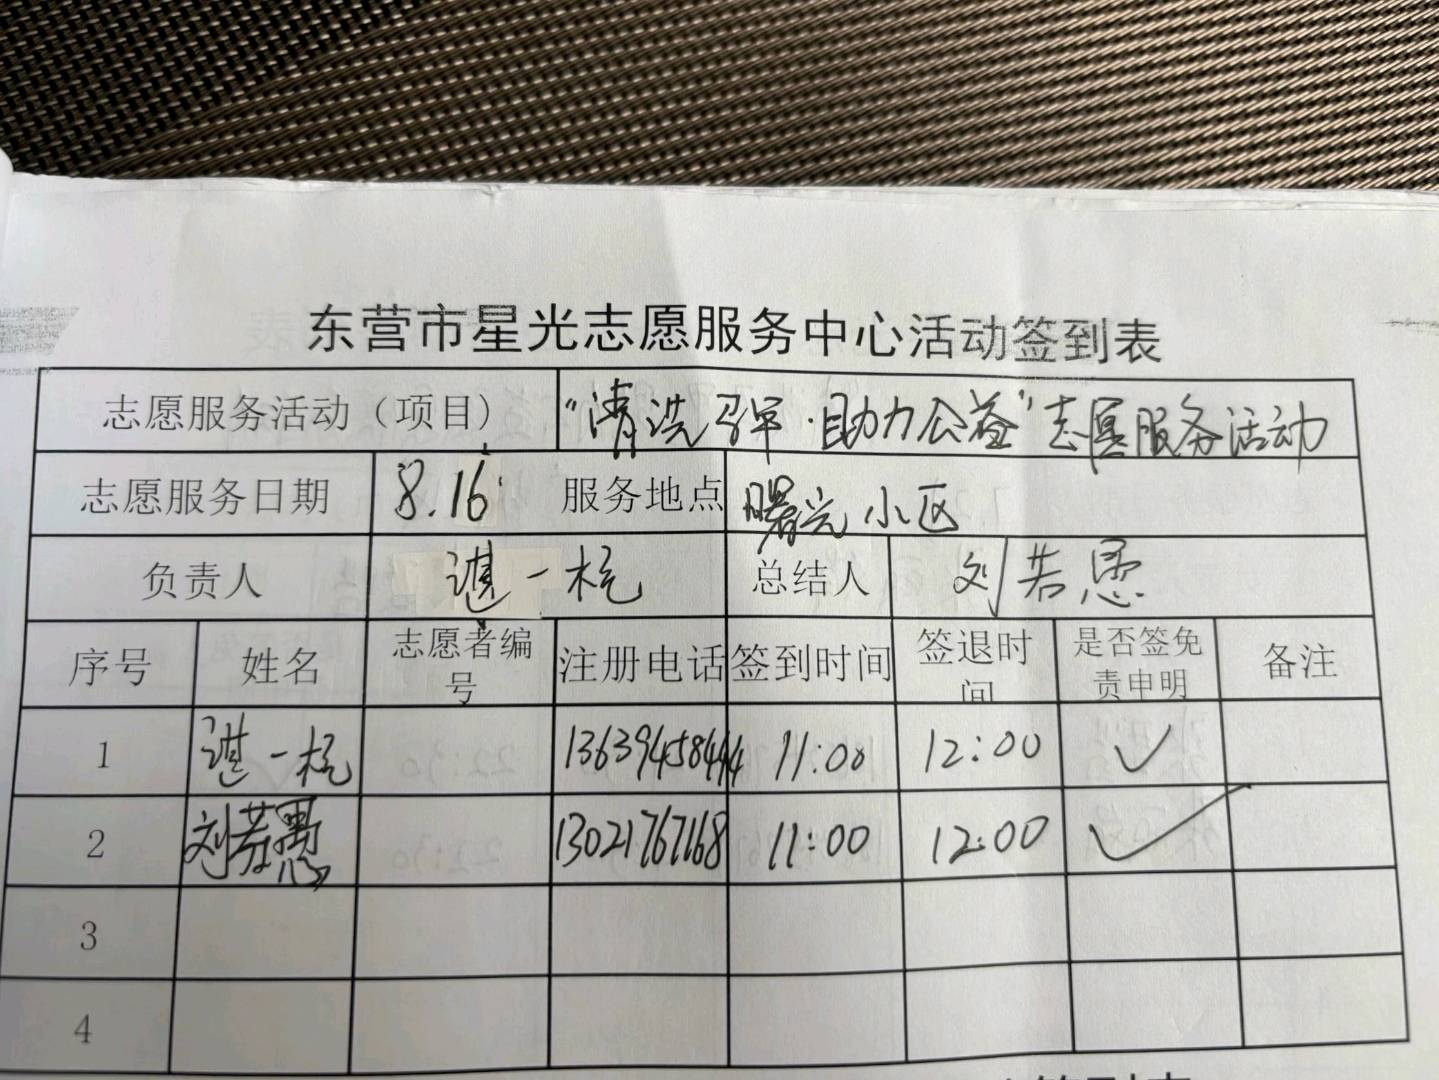 东营市星光志愿服务中心活动签到表
志愿服务活动（项目） “清洗 ·助力公益”志愿服务活动
志愿服务日期 8.16 服务地点 曙光小区
负责人 谌一 总结人 刘若愚
序号 姓名 志愿者编号 注册电话 签到时间 签退时间 是否签免责申明 备注
1 谌一 11:00 12:00 ✓
2 刘若愚 13021767168 11:00 12:00 ✓
3
4